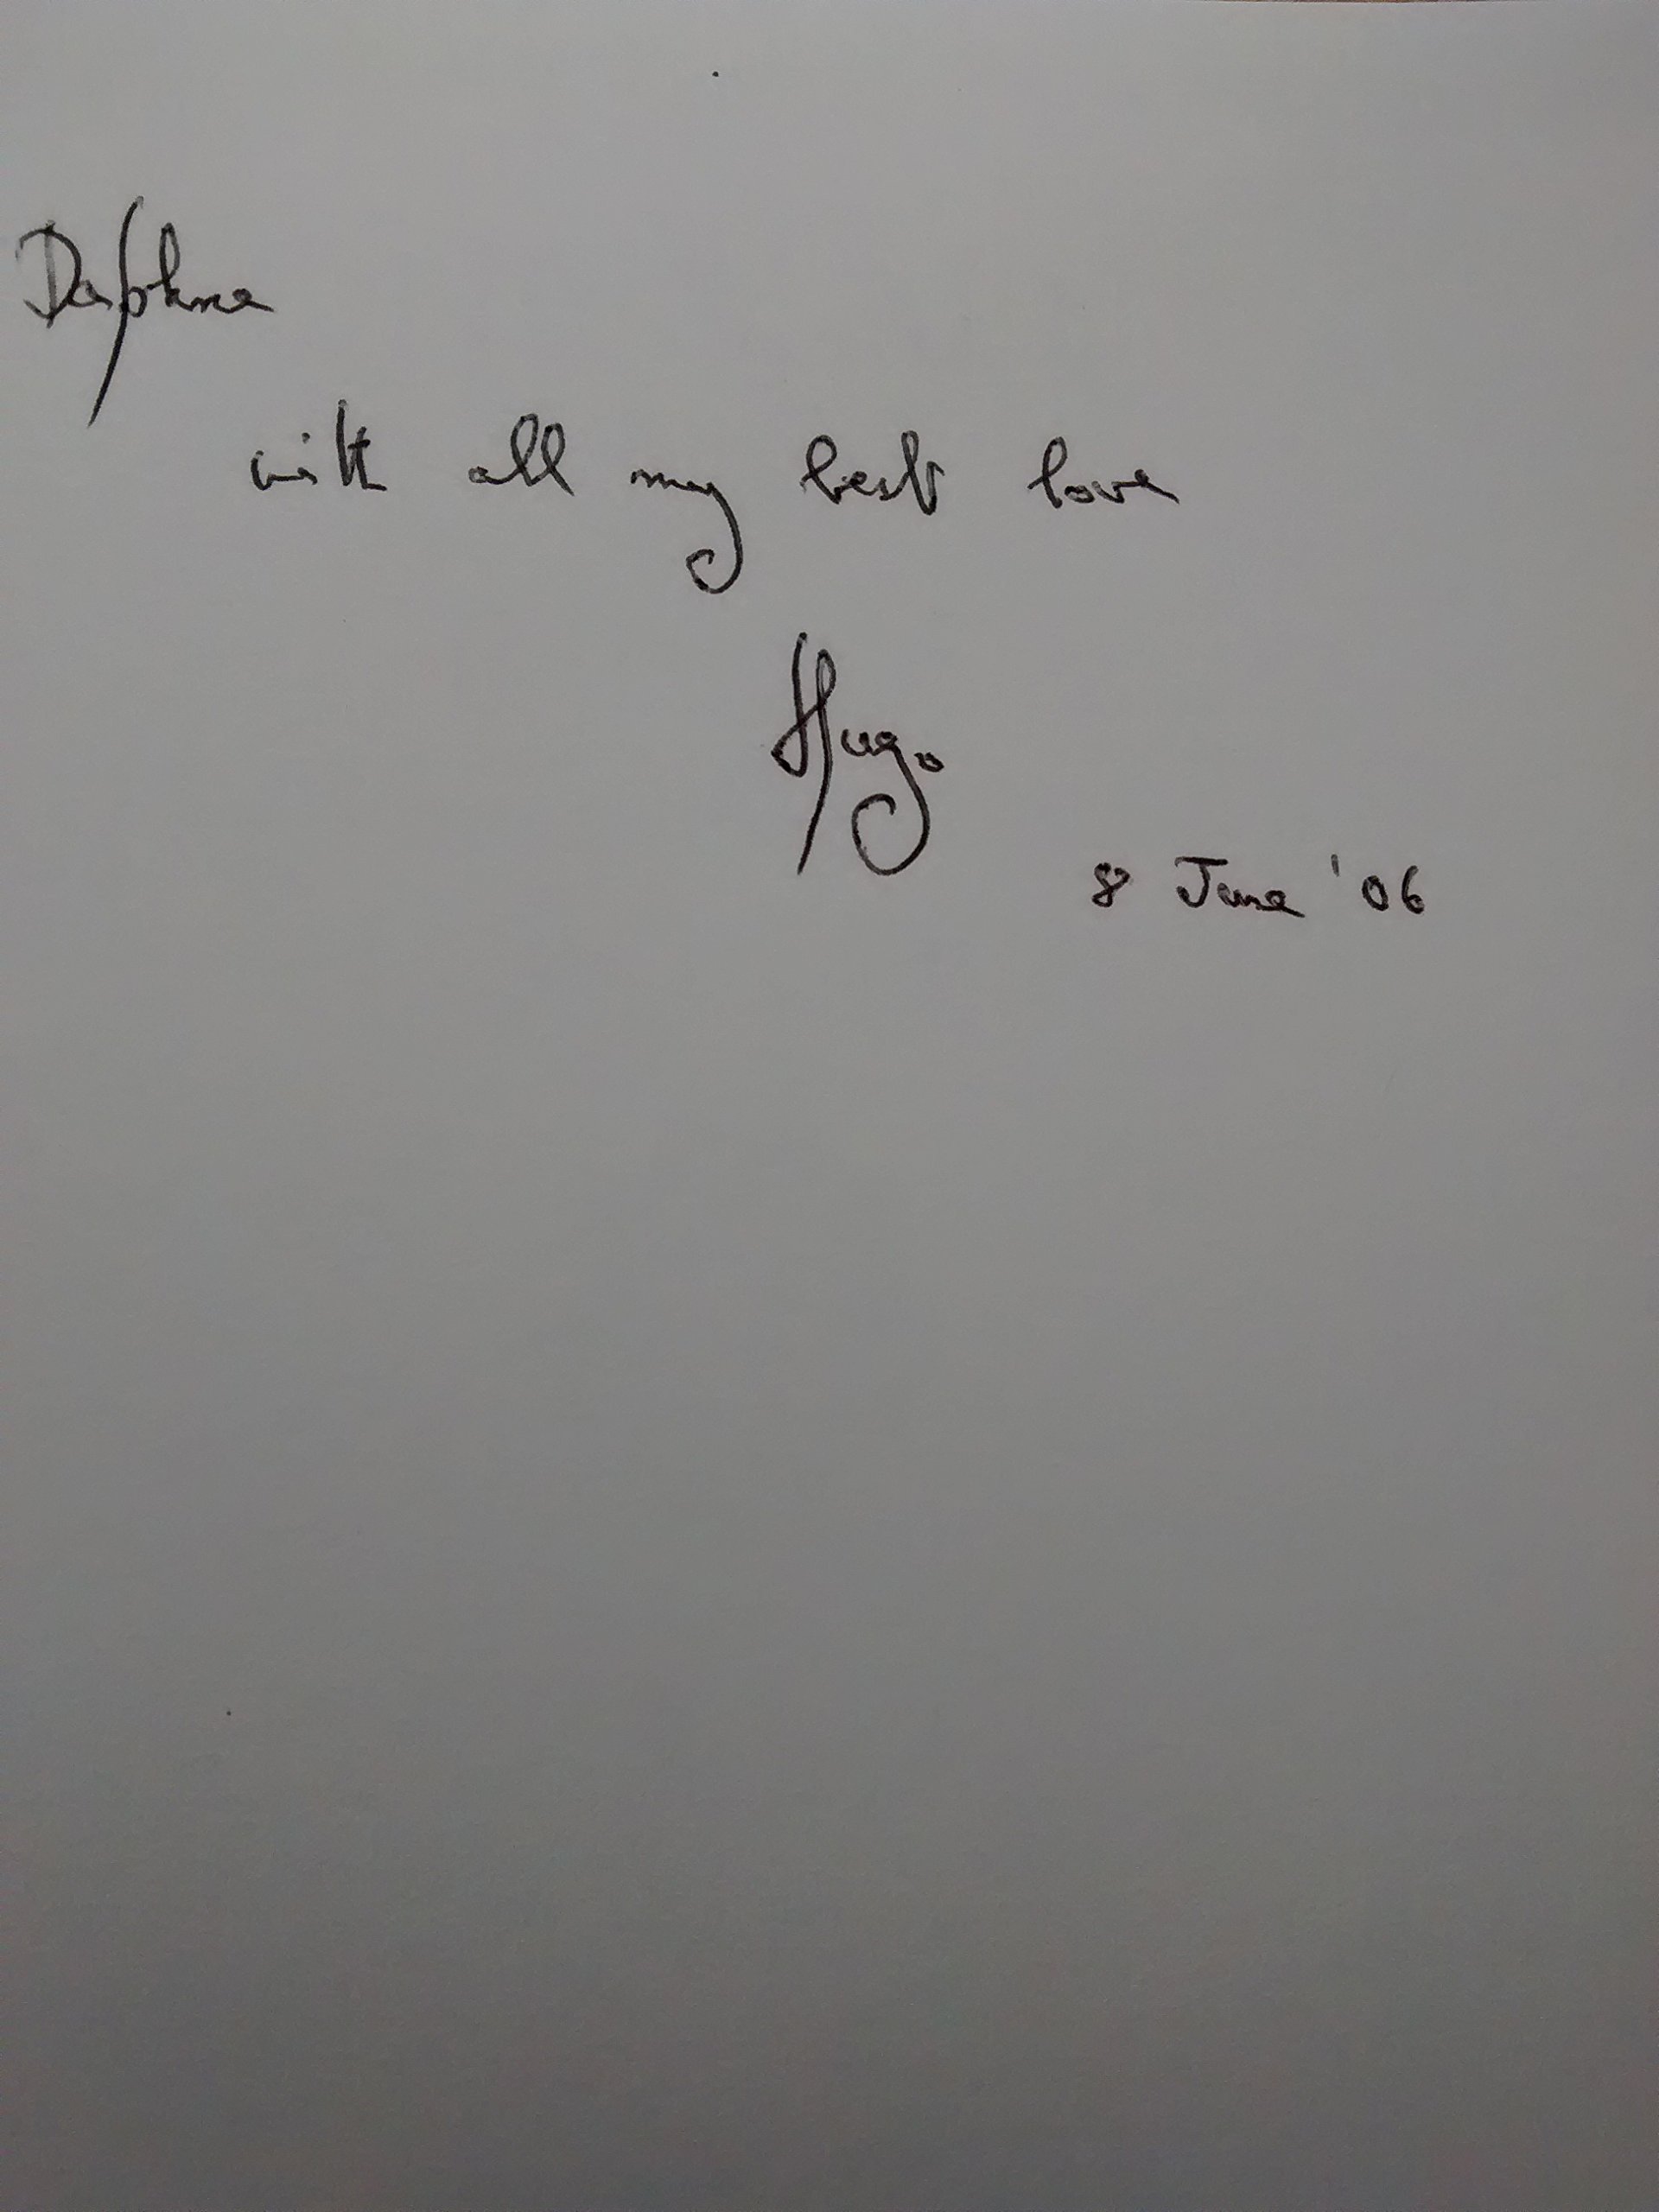 Daphne
with all my best love
Hugo
8 June '06